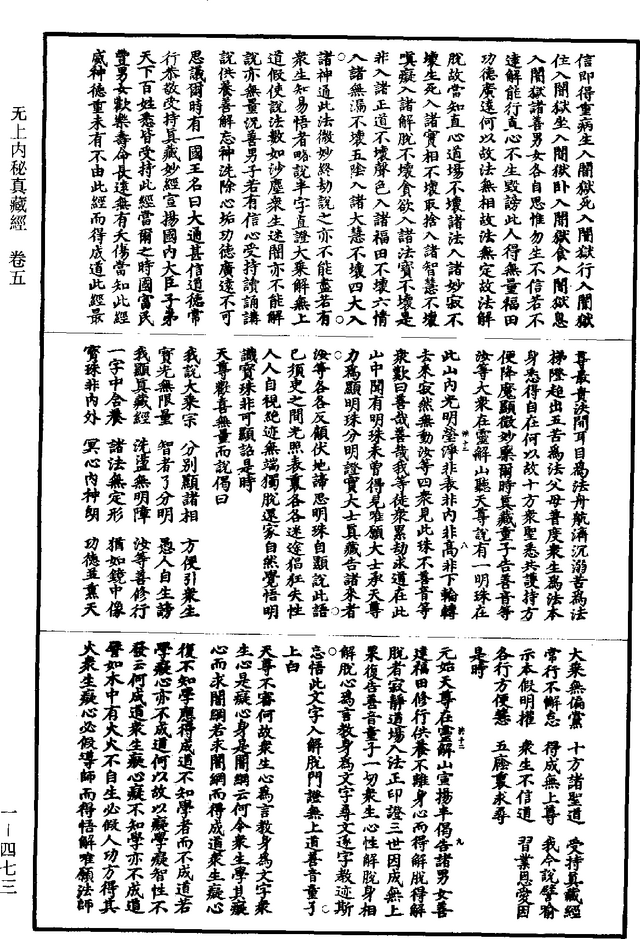 信即得重病生入闇獄死入闇獄行入闇獄
住入闇獄坐入闇獄卧入闇獄食入闇獄息
入闇獄諸善男女各自思惟勿生不信若不
達解能行直心不生毀謗此人得無量福田
功德廣遠何以故法無相故法無定故法解
脫故當知直心道場不壞諸法入諸妙寂不
壞生死入諸實相不壞取捨入諸智慧不壞
嗔癡入諸解脫不壞貪欲入諸法寶不壞是
非入諸正道不壞聲色入諸福田不壞六情
入諸無漏不壞五陰入諸大慧不壞四大入
諸神通此法微妙終劫說之亦不能盡若有
衆生知易悟者略說半字直證大乘解無上
道假使說法數如沙塵衆生迷闇亦不能解
說亦無量況善男子若有信心受持讀誦講
說供養善解忘神洗除心垢功德廣遠不可
思議爾時有一國王名曰大通甚信道德常
行恭敬受持真藏妙經宣揚國內大臣子弟
天下百姓悉皆受持此經當爾之時國富民
豐男女歡樂壽命長遠無有夭傷當知此經
威神德重未有不由此經而得成道此經最
尊最貴決閉耳目爲法舟航濟沉溺苦爲法
梯隥超出五苦爲法父母普度衆生爲法本
身悉得自在何以故十方衆聖悉共護持方
便降魔顯微妙藥爾時真藏童子告善音等
汝等大衆在靈解山聽天尊說有一明珠在
此山內光明瑩淨非表非內非高非下輪轉
去來寂然無動汝等四衆見此珠不善音等
衆歎曰善哉善哉我等徒衆累劫求道在此
山中聞有明珠未曾得見唯願大士承天尊
力爲顯明珠分明證寶大士真藏告諸來者
汝等各各反顧伏地諦思明珠自顯說此語
已須臾之間光照表裏各各迷途猖狂失性
人人自稅絶迹無端獨脫還家自然覺悟明
識寶珠非可顯諂是時
天尊歡喜無量而說偈曰
我說大乘宗　分別顯諸相　方便引衆生
寶光無限量　智者了分明　愚人自生謗
我顯真藏經　洗盪無明障　汝等善修行
一字中含養　諸法無定形　猶如鏡中像
寶珠非內外　冥心內神朗　功德並熏天
大乘無偏黨　十方諸聖道　受持真藏經
常行不懈怠　得成無上尊　我今說譬喻
示本假明權　衆生不信道　習業恩愛因
各行方便慧　五廕裏求尋
是時
元始天尊在靈解山宣揚半偈告諸男女善
達福田修行供養不離身心而得解脫得解
脫者寂靜道場入法正印證三世因成無上
果復告善音童子一切衆生心性解脫身相
解脫心爲言教身爲文字尊文逐字教迹斯
忘悟此文字入解脫門證無上道善音童子
上白
天尊不審何故衆生心爲言教身爲文字衆
生心是癡心身是闇網云何令衆生學其癡
心而求闇網若求闇網而得成道衆生癡心
復不知學應得成道不知學者而不成道若
學癡心亦不成道何以故以癡學癡智性不
發云何成道衆生癡心癡不知學亦不成道
譬如木中有火火不自生必假人功方得其
火衆生癡心必假導師而得悟解唯願法師
无上內秘真藏經　卷五
一—四七三